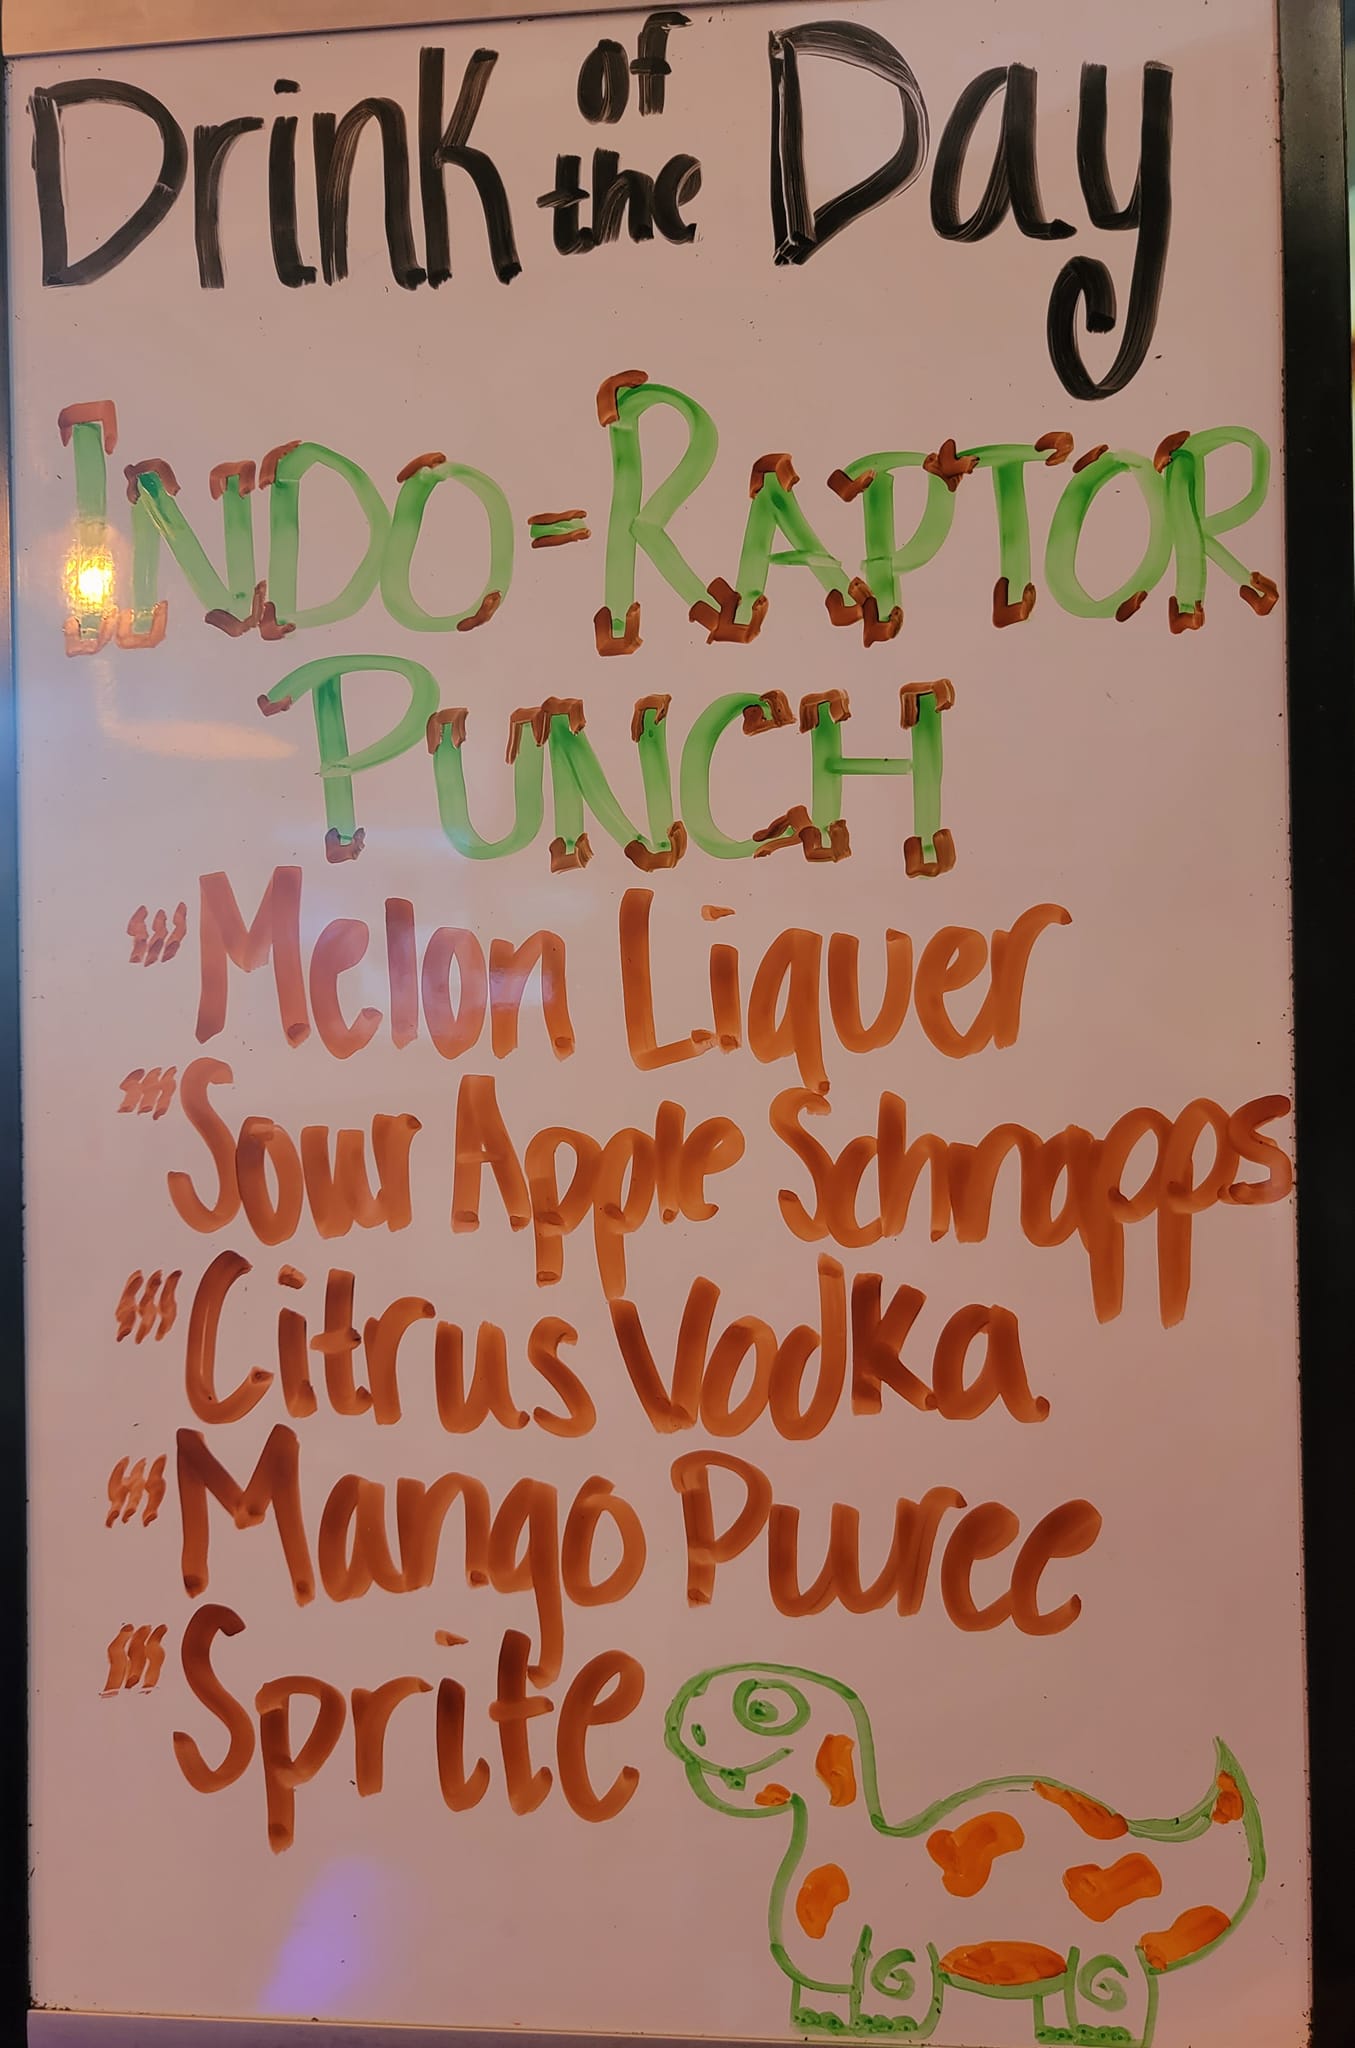 Drink of the Day
INDO=RAPTOR
PUNCH
Melon Liquer
Sour Apple Schnapps
Citrus Vodka
Mango Puree
Sprite